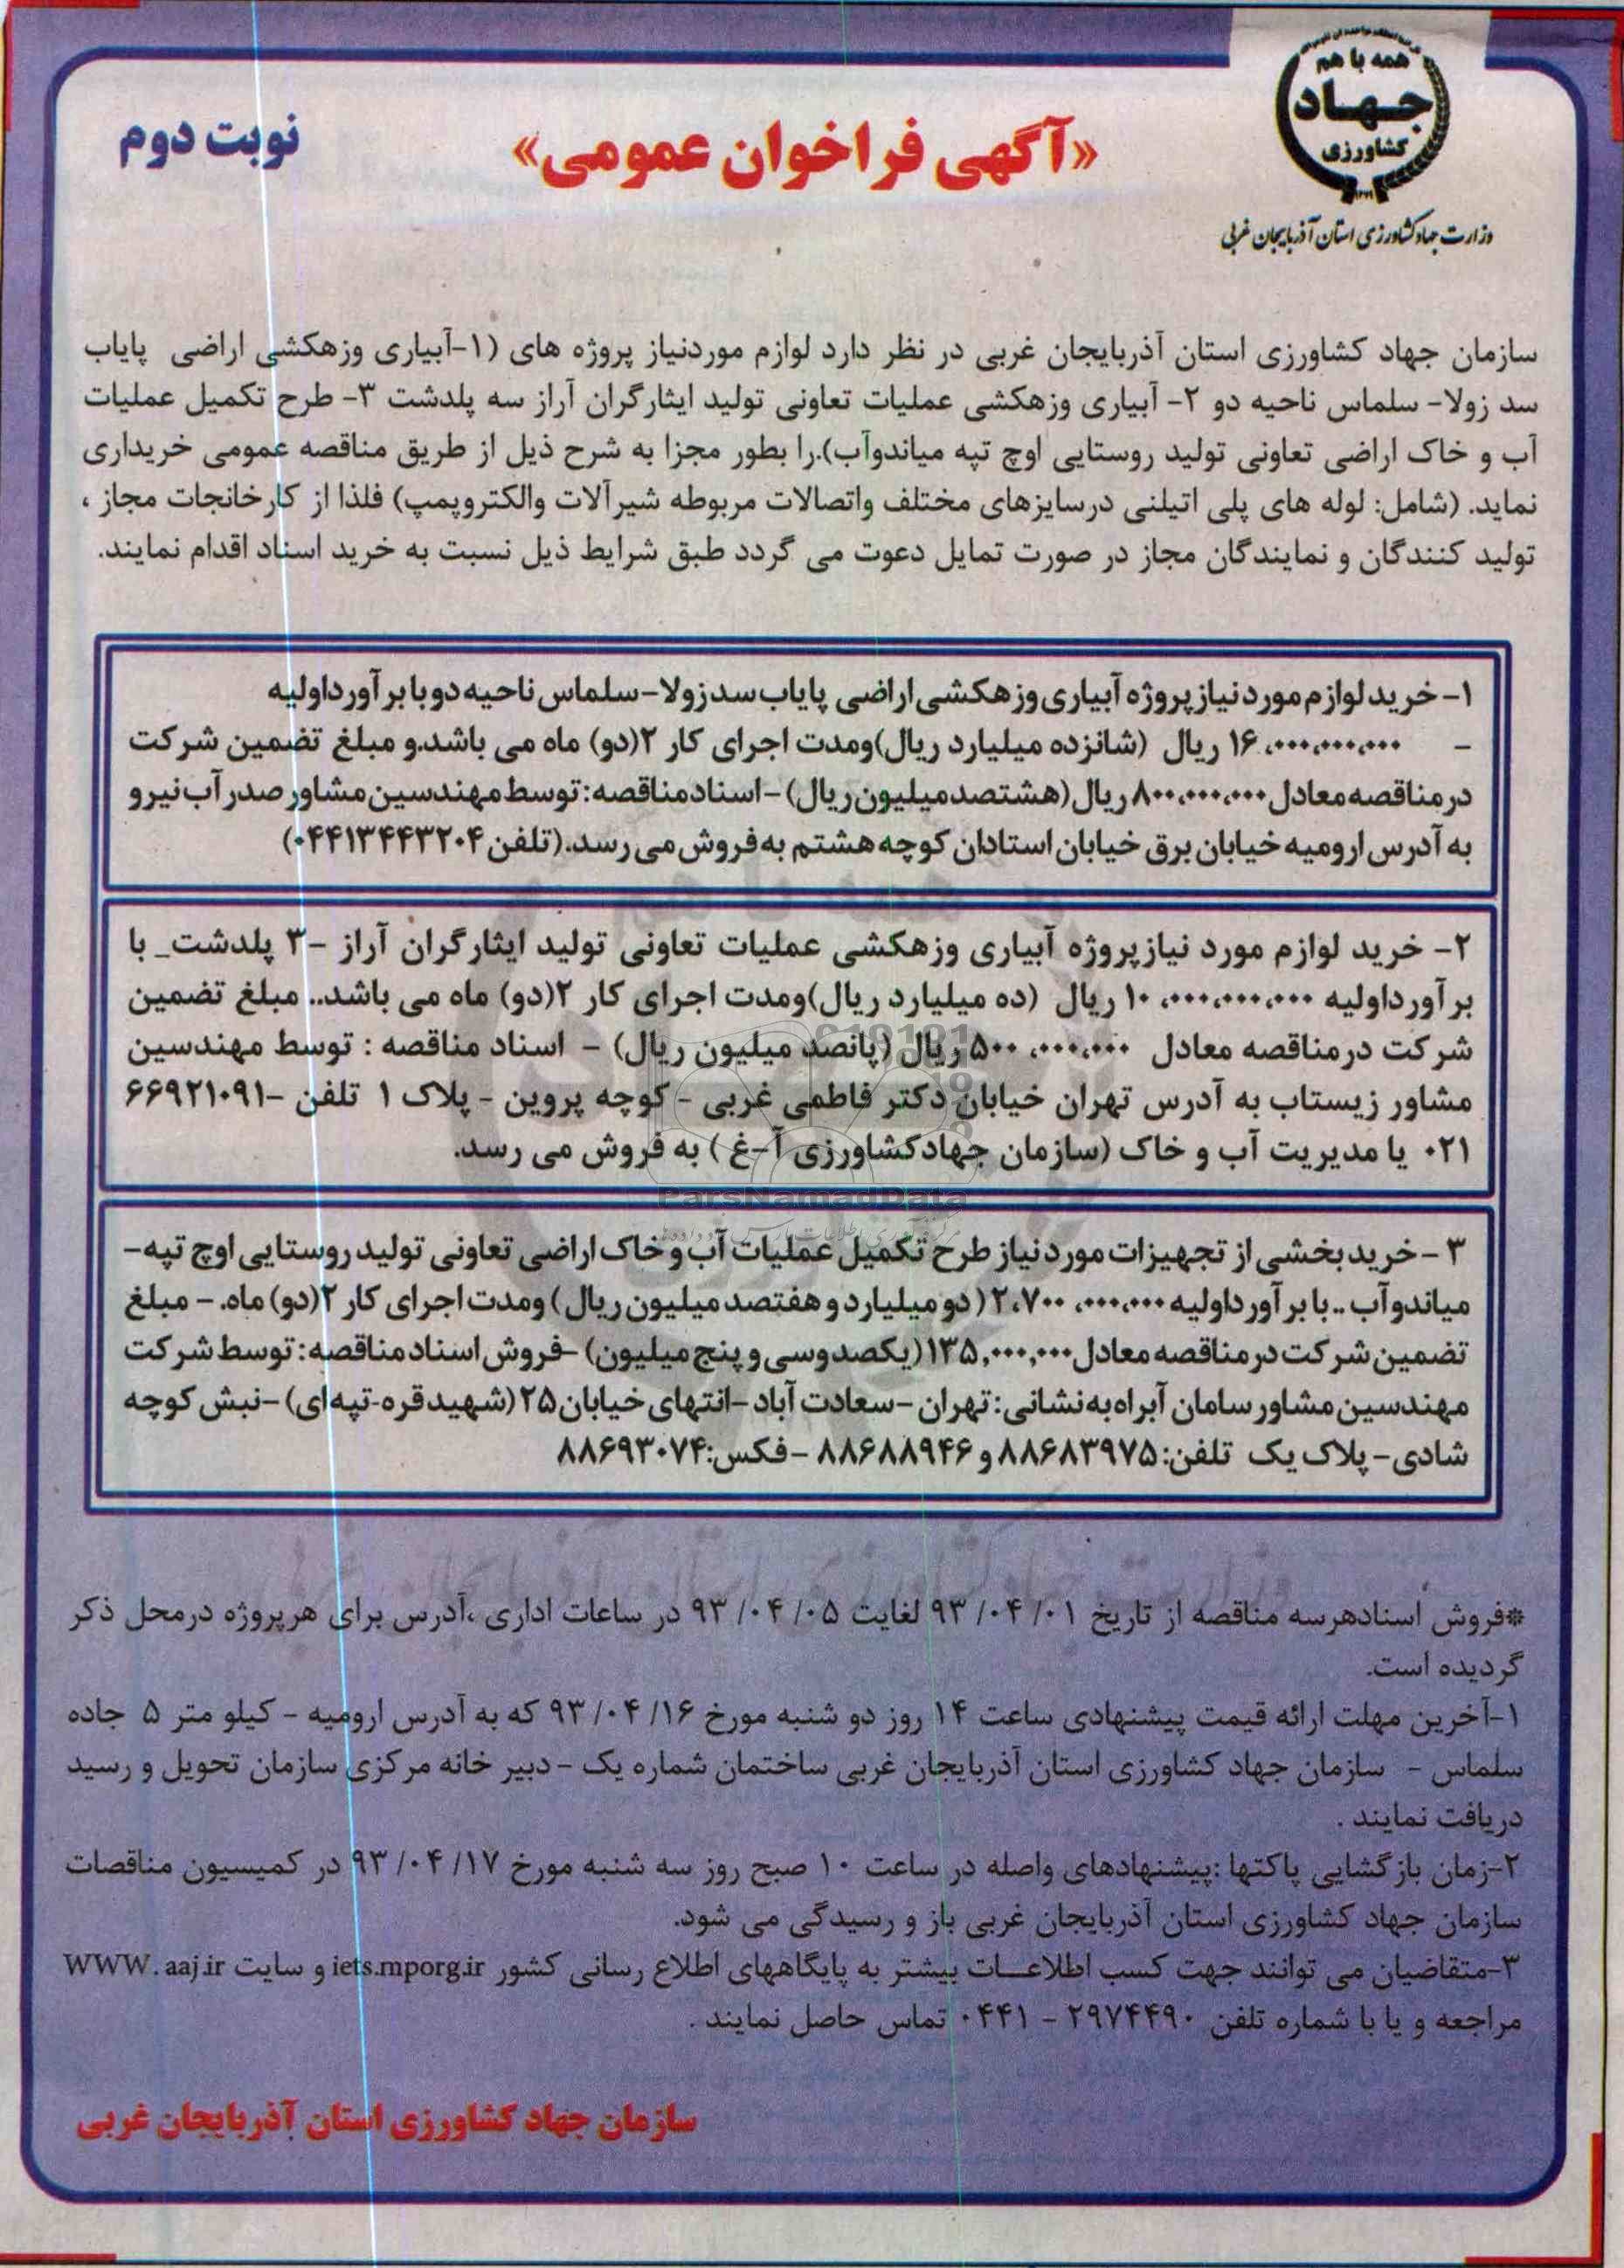 همه با هم
جهاد
کشاورزی
وزارت جهاد کشاورزی استان آذربایجان غربی
«آگهی فراخوان عمومی»
نوبت دوم
سازمان جهاد کشاورزی استان آذربایجان غربی در نظر دارد لوازم موردنیاز پروژه های (۱-آبیاری وزهکشی اراضی پایاب
سد زولا- سلماس ناحیه دو ۲- آبیاری وزهکشی عملیات تعاونی تولید ایثارگران آراز سه پلدشت ۳- طرح تکمیل عملیات
آب و خاک اراضی تعاونی تولید روستایی اوچ تپه میاندوآب).را بطور مجزا به شرح ذیل از طریق مناقصه عمومی خریداری
نماید. (شامل: لوله های پلی اتیلنی درسایزهای مختلف واتصالات مربوطه شیرآلات والکتروپمپ) فلذا از کارخانجات مجاز ،
تولید کنندگان و نمایندگان مجاز در صورت تمایل دعوت می گردد طبق شرایط ذیل نسبت به خرید اسناد اقدام نمایند.
۱- خرید لوازم مورد نیاز پروژه آبیاری وزهکشی اراضی پایاب سد زولا-سلماس ناحیه دو با برآورد اولیه
- ۱۶،۰۰۰،۰۰۰،۰۰۰ ریال (شانزده میلیارد ریال)ومدت اجرای کار ۲(دو) ماه می باشد.و مبلغ تضمین شرکت
در مناقصه معادل ۸۰۰،۰۰۰،۰۰۰ ریال (هشتصد میلیون ریال) -اسناد مناقصه: توسط مهندسین مشاور صدر آب نیرو
به آدرس ارومیه خیابان برق خیابان استادان کوچه هشتم به فروش می رسد.(تلفن ۰۴۴۱۳۴۴۳۲۰۴)
۲- خرید لوازم مورد نیازپروژه آبیاری وزهکشی عملیات تعاونی تولید ایثارگران آراز -۳ پلدشت_ با
برآورداولیه ۱۰،۰۰۰،۰۰۰،۰۰۰ ریال (ده میلیارد ریال)ومدت اجرای کار ۲(دو) ماه می باشد.. مبلغ تضمین
شرکت درمناقصه معادل ۵۰۰،۰۰۰،۰۰۰ ریال (پانصد میلیون ریال) - اسناد مناقصه : توسط مهندسین
مشاور زیستاب به آدرس تهران خیابان دکتر فاطمی غربی - کوچه پروین - پلاک ۱ تلفن -۶۶۹۲۱۰۹۱
۰۲۱ یا مدیریت آب و خاک (سازمان جهادکشاورزی آ-غ ) به فروش می رسد.
ParsNamadData
۳ - خرید بخشی از تجهیزات مورد نیاز طرح تکمیل عملیات آب و خاک اراضی تعاونی تولید روستایی اوچ تپه-
میاندوآب .. با برآورد اولیه ۲،۷۰۰،۰۰۰،۰۰۰ (دو میلیارد و هفتصد میلیون ریال) ومدت اجرای کار ۲(دو) ماه. - مبلغ
تضمین شرکت در مناقصه معادل ۱۳۵,۰۰۰,۰۰۰ (یکصد وسی و پنج میلیون) -فروش اسناد مناقصه: توسط شرکت
مهندسین مشاور سامان آبراه به نشانی: تهران -سعادت آباد -انتهای خیابان ۲۵ (شهید قره-تپه ای) -نبش کوچه
شادی- پلاک یک تلفن: ۸۸۶۸۳۹۷۵ و ۸۸۶۸۸۹۴۶ -فکس: ۸۸۶۹۳۰۷۴
*فروش اسنادهرسه مناقصه از تاریخ ۰۱/ ۰۴/ ۹۳ لغایت ۰۵/ ۰۴/ ۹۳ در ساعات اداری ،آدرس برای هرپروژه درمحل ذکر
گردیده است.
۱-آخرین مهلت ارائه قیمت پیشنهادی ساعت ۱۴ روز دو شنبه مورخ ۱۶/ ۰۴/ ۹۳ که به آدرس ارومیه - کیلو متر ۵ جاده
سلماس - سازمان جهاد کشاورزی استان آذربایجان غربی ساختمان شماره یک -دبیر خانه مرکزی سازمان تحویل و رسید
دریافت نمایند .
۲-زمان بازگشایی پاکتها :پیشنهادهای واصله در ساعت ۱۰ صبح روز سه شنبه مورخ ۱۷/ ۰۴/ ۹۳ در کمیسیون مناقصات
سازمان جهاد کشاورزی استان آذربایجان غربی باز و رسیدگی می شود.
۳-متقاضیان می توانند جهت کسب اطلاعـات بیشتر به پایگاههای اطلاع رسانی کشور iets.mporg.ir و سایت WWW.aaj.ir
مراجعه و یا با شماره تلفن ۲۹۷۴۴۹۰ - ۰۴۴۱ تماس حاصل نمایند .
سازمان جهاد کشاورزی استان آذربایجان غربی